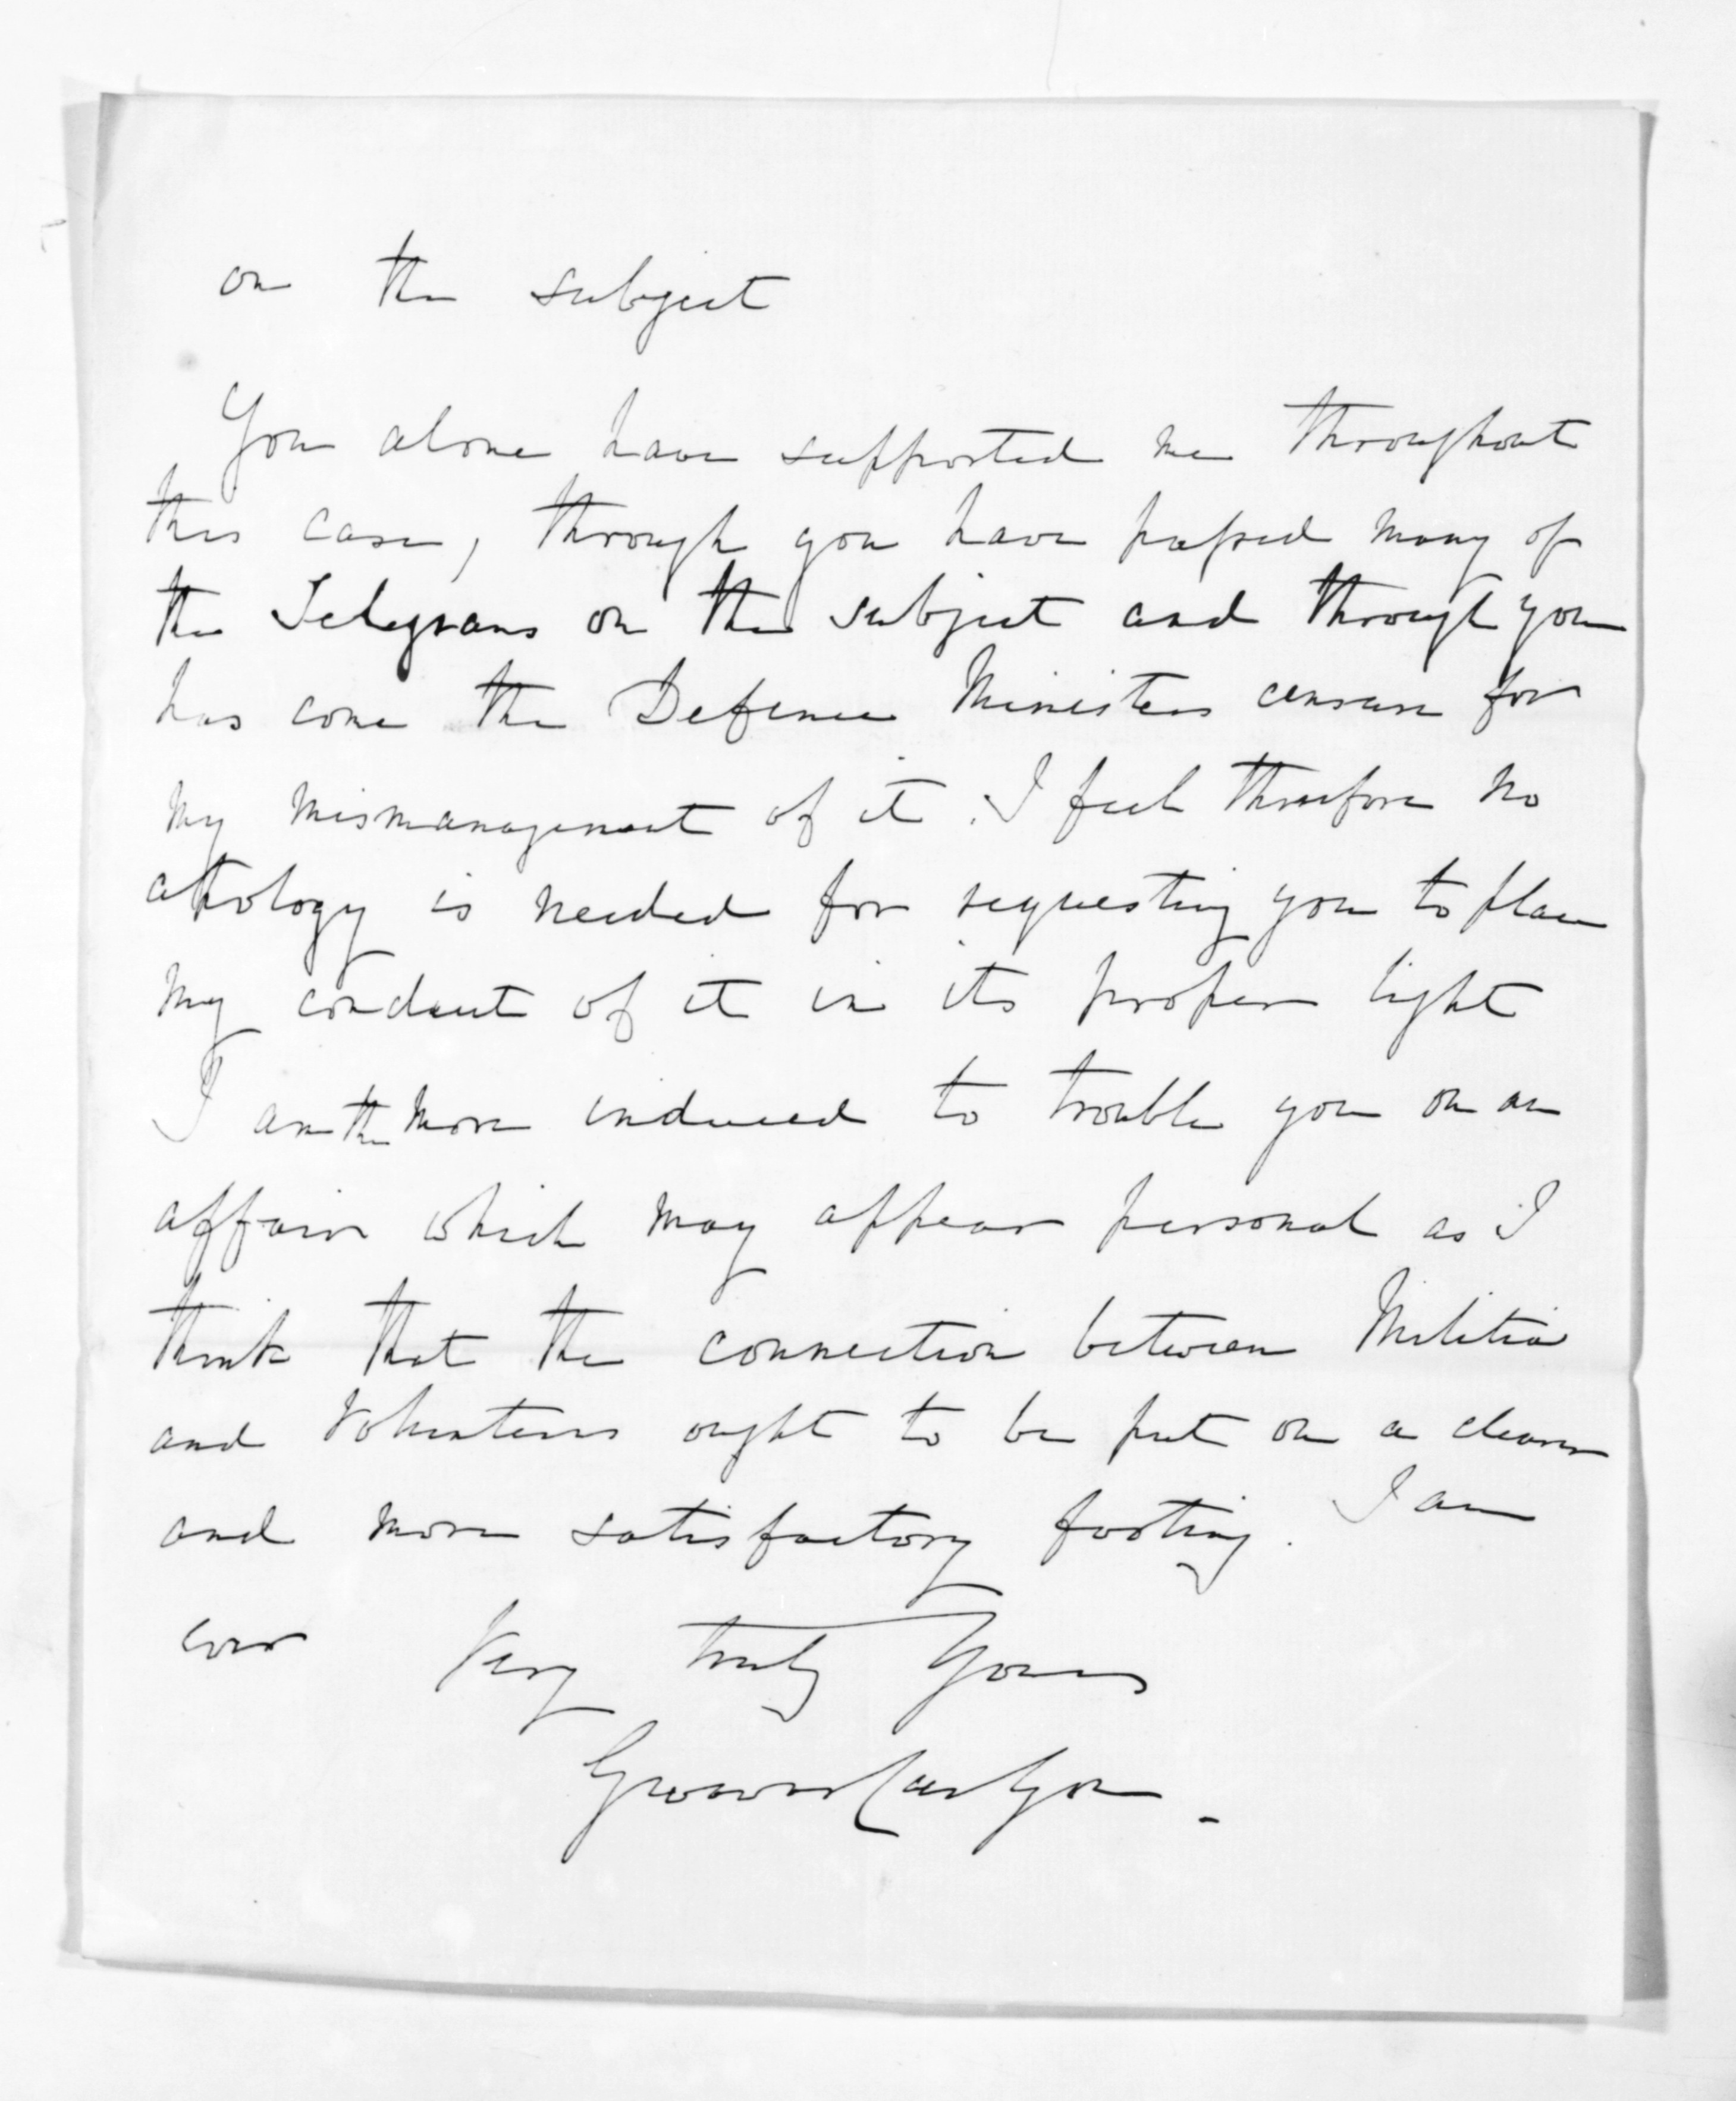 on the subject
You alone have supported me throughout
this case, through you have passed many of
the Telegrams on the subject and through you
has come the Defence Ministers censure for
my mismanagement of it. I feel therefore no
apology is needed for requesting you to place
my conduct of it in its proper light
I am the more induced to trouble you on an
affair which may appear personal as I
think that the connection between Militia
and Volunteers ought to be put on a clearer
and more satisfactory footing. I am
Very truly Yours